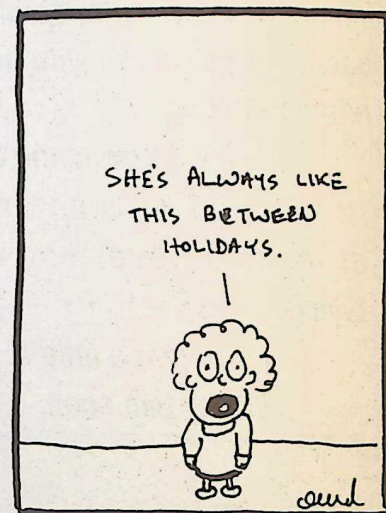 SHE'S ALWAYS LIKE
THIS BETWEEN
HOLIDAYS.